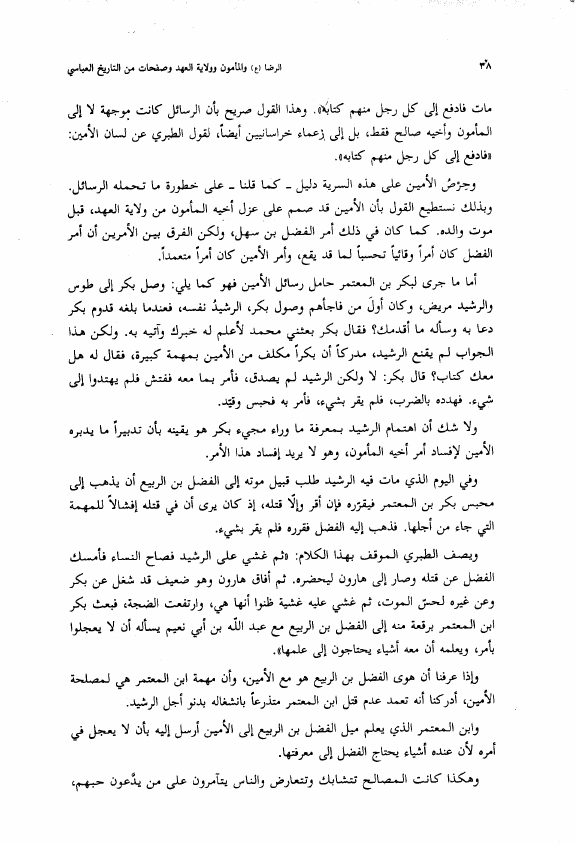 ٣٨
الرضا (ع) والمأمون وولاية العهد وصفحات من التاريخ العباسي
مات فادفع إلى كل رجل منهم كتابه». وهذا القول صريح بأن الرسائل كانت موجهة لا إلى
المأمون وأخيه صالح فقط، بل إلى زعماء خراسانيين أيضاً، لقول الطبري عن لسان الأمين:
«فادفع إلى كل رجل منهم كتابه».
وحِرْصُ الأمين على هذه السرية دليل ـ كما قلنا ـ على خطورة ما تحمله الرسائل.
وبذلك نستطيع القول بأن الأمين قد صمم على عزل أخيه المأمون من ولاية العهد، قبل
موت والده. كما كان في ذلك أمر الفضل بن سهل، ولكن الفرق بين الأمرين أن أمر
الفضل كان أمراً وقائياً تحسباً لما قد يقع، وأمر الأمين كان أمراً متعمداً.
أما ما جرى لبكر بن المعتمر حامل رسائل الأمين فهو كما يلي: وصل بكر إلى طوس
والرشيد مريض، وكان أولَ من فاجأهم وصول بكر، الرشيدُ نفسه، فعندما بلغه قدوم بكر
دعا به وسأله ما أقدمك؟ فقال بكر بعثني محمد لأعلم له خبرك وآتيه به. ولكن هذا
الجواب لم يقنع الرشيد، مدركاً أن بكراً مكلف من الأمين بمهمة كبيرة، فقال له هل
معك كتاب؟ قال بكر: لا ولكن الرشيد لم يصدق، فأمر بما معه ففتش فلم يهتدوا إلى
شيء. فهدده بالضرب، فلم يقر بشيء، فأمر به فحبس وقيّد.
ولا شك أن اهتمام الرشيد بمعرفة ما وراء مجيء بكر هو يقينه بأن تدبيراً ما يدبره
الأمين لإفساد أمر أخيه المأمون، وهو لا يريد إفساد هذا الأمر.
وفي اليوم الذي مات فيه الرشيد طلب قبيل موته إلى الفضل بن الربيع أن يذهب إلى
محبس بكر بن المعتمر فيقرّره فإن أقر وإلّا قتله، إذ كان يرى أن في قتله إفشالاً للمهمة
التي جاء من أجلها. فذهب إليه الفضل فقرره فلم يقر بشيء.
ويصف الطبري الموقف بهذا الكلام: «ثم غشي على الرشيد فصاح النساء فأمسك
الفضل عن قتله وصار إلى هارون ليحضره. ثم أفاق هارون وهو ضعيف قد شغل عن بكر
وعن غيره لحسّ الموت، ثم غشي عليه غشية ظنوا أنها هي، وارتفعت الضجة، فبعث بكر
ابن المعتمر برقعة منه إلى الفضل بن الربيع مع عبد اللّه بن أبي نعيم يسأله أن لا يعجلوا
بأمر، ويعلمه أن معه أشياء يحتاجون إلى علمها».
وإذا عرفنا أن هوى الفضل بن الربيع هو مع الأمين، وأن مهمة ابن المعتمر هي لمصلحة
الأمين، أدركنا أنه تعمد عدم قتل ابن المعتمر متذرعاً بانشغاله بدنو أجل الرشيد.
وابن المعتمر الذي يعلم ميل الفضل بن الربيع إلى الأمين أرسل إليه بأن لا يعجل في
أمره لأن عنده أشياء يحتاج الفضل إلى معرفتها.
وهكذا كانت المصالح تتشابك وتتعارض والناس يتآمرون على من يدَّعون حبهم،